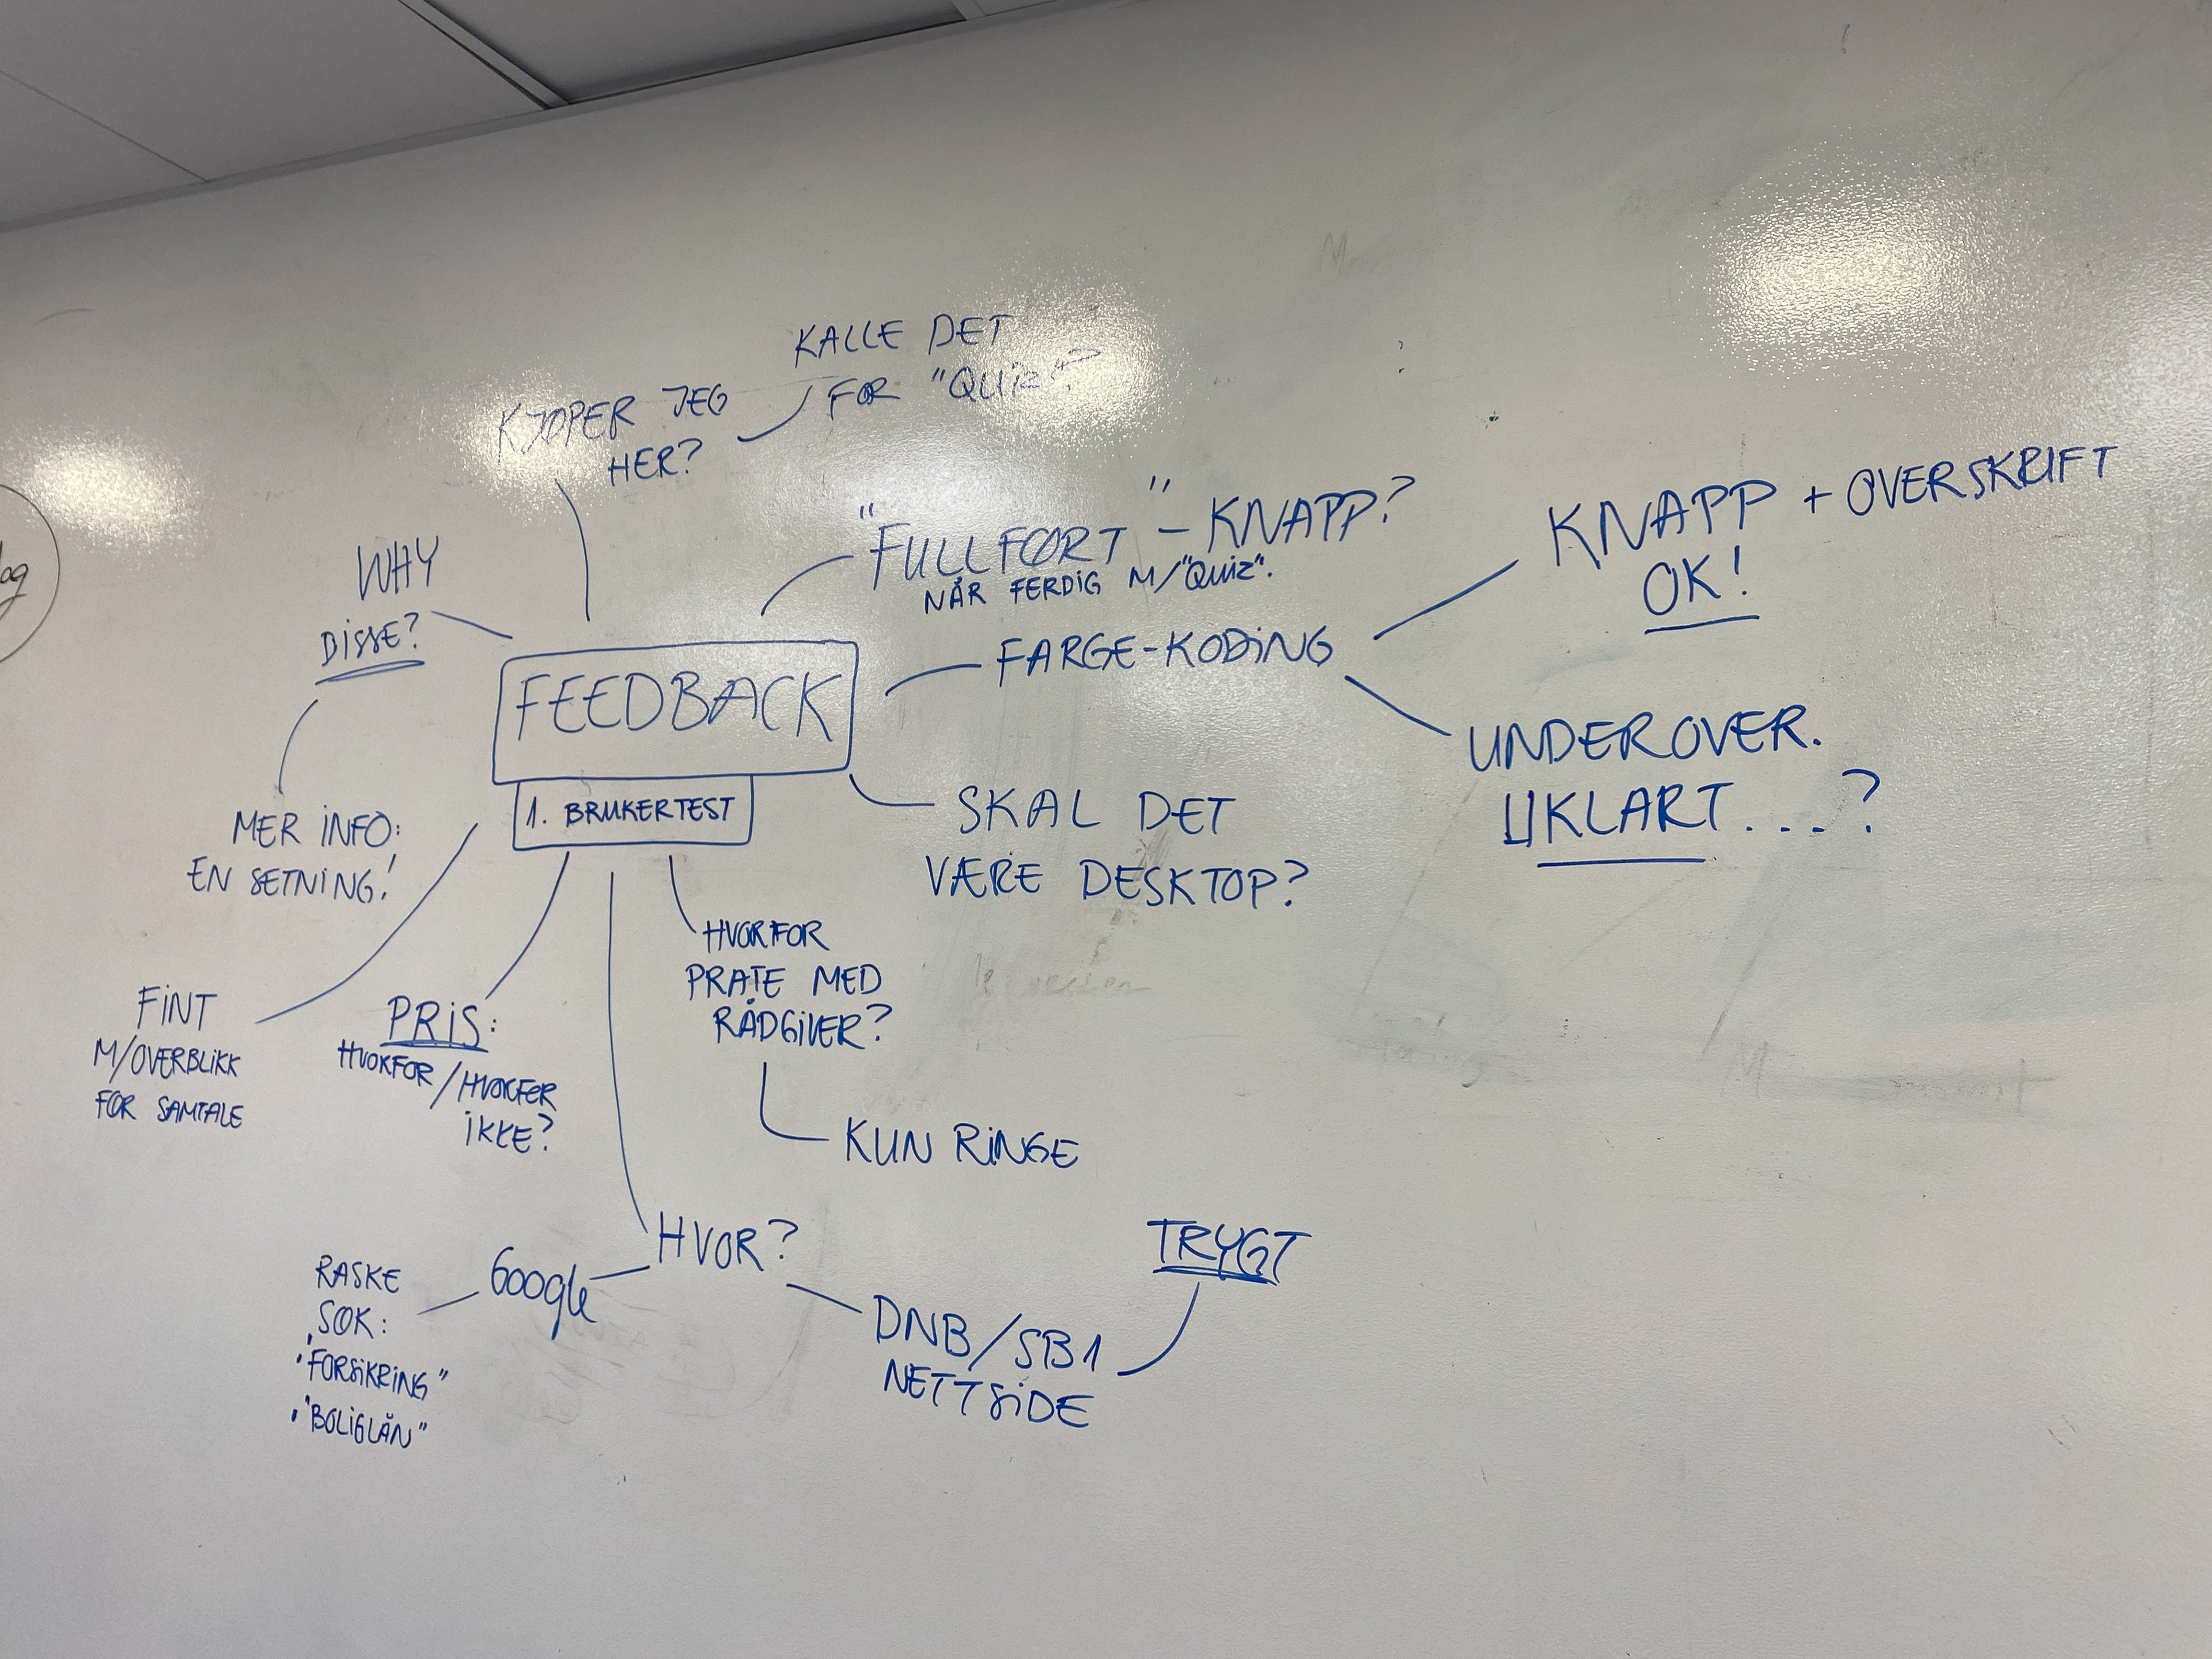 KALLE DET
FOR "QUIZ"?
KJØPER JEG
HER?
"FULLFØRT" - KNAPP?
NÅR FERDIG M/"QUIZ".
KNAPP + OVERSKRIFT
OK!
WHY
DISSE?
FARGE-KODING
FEEDBACK
1. BRUKERTEST
UNDEROVER.
UKLART....?
SKAL DET
VÆRE DESKTOP?
MER INFO:
EN SETNING!
HVORFOR
PRATE MED
RÅDGIVER?
KUN RINGE
FINT
M/OVERBLIKK
FØR SAMTALE
PRIS:
HVORFOR/HVORFOR
IKKE?
HVOR?
Google
RASKE
SØK:
• "FORSIKRING"
• "BOLIGLÅN"
TRYGT
DNB/SB1
NETTSIDE